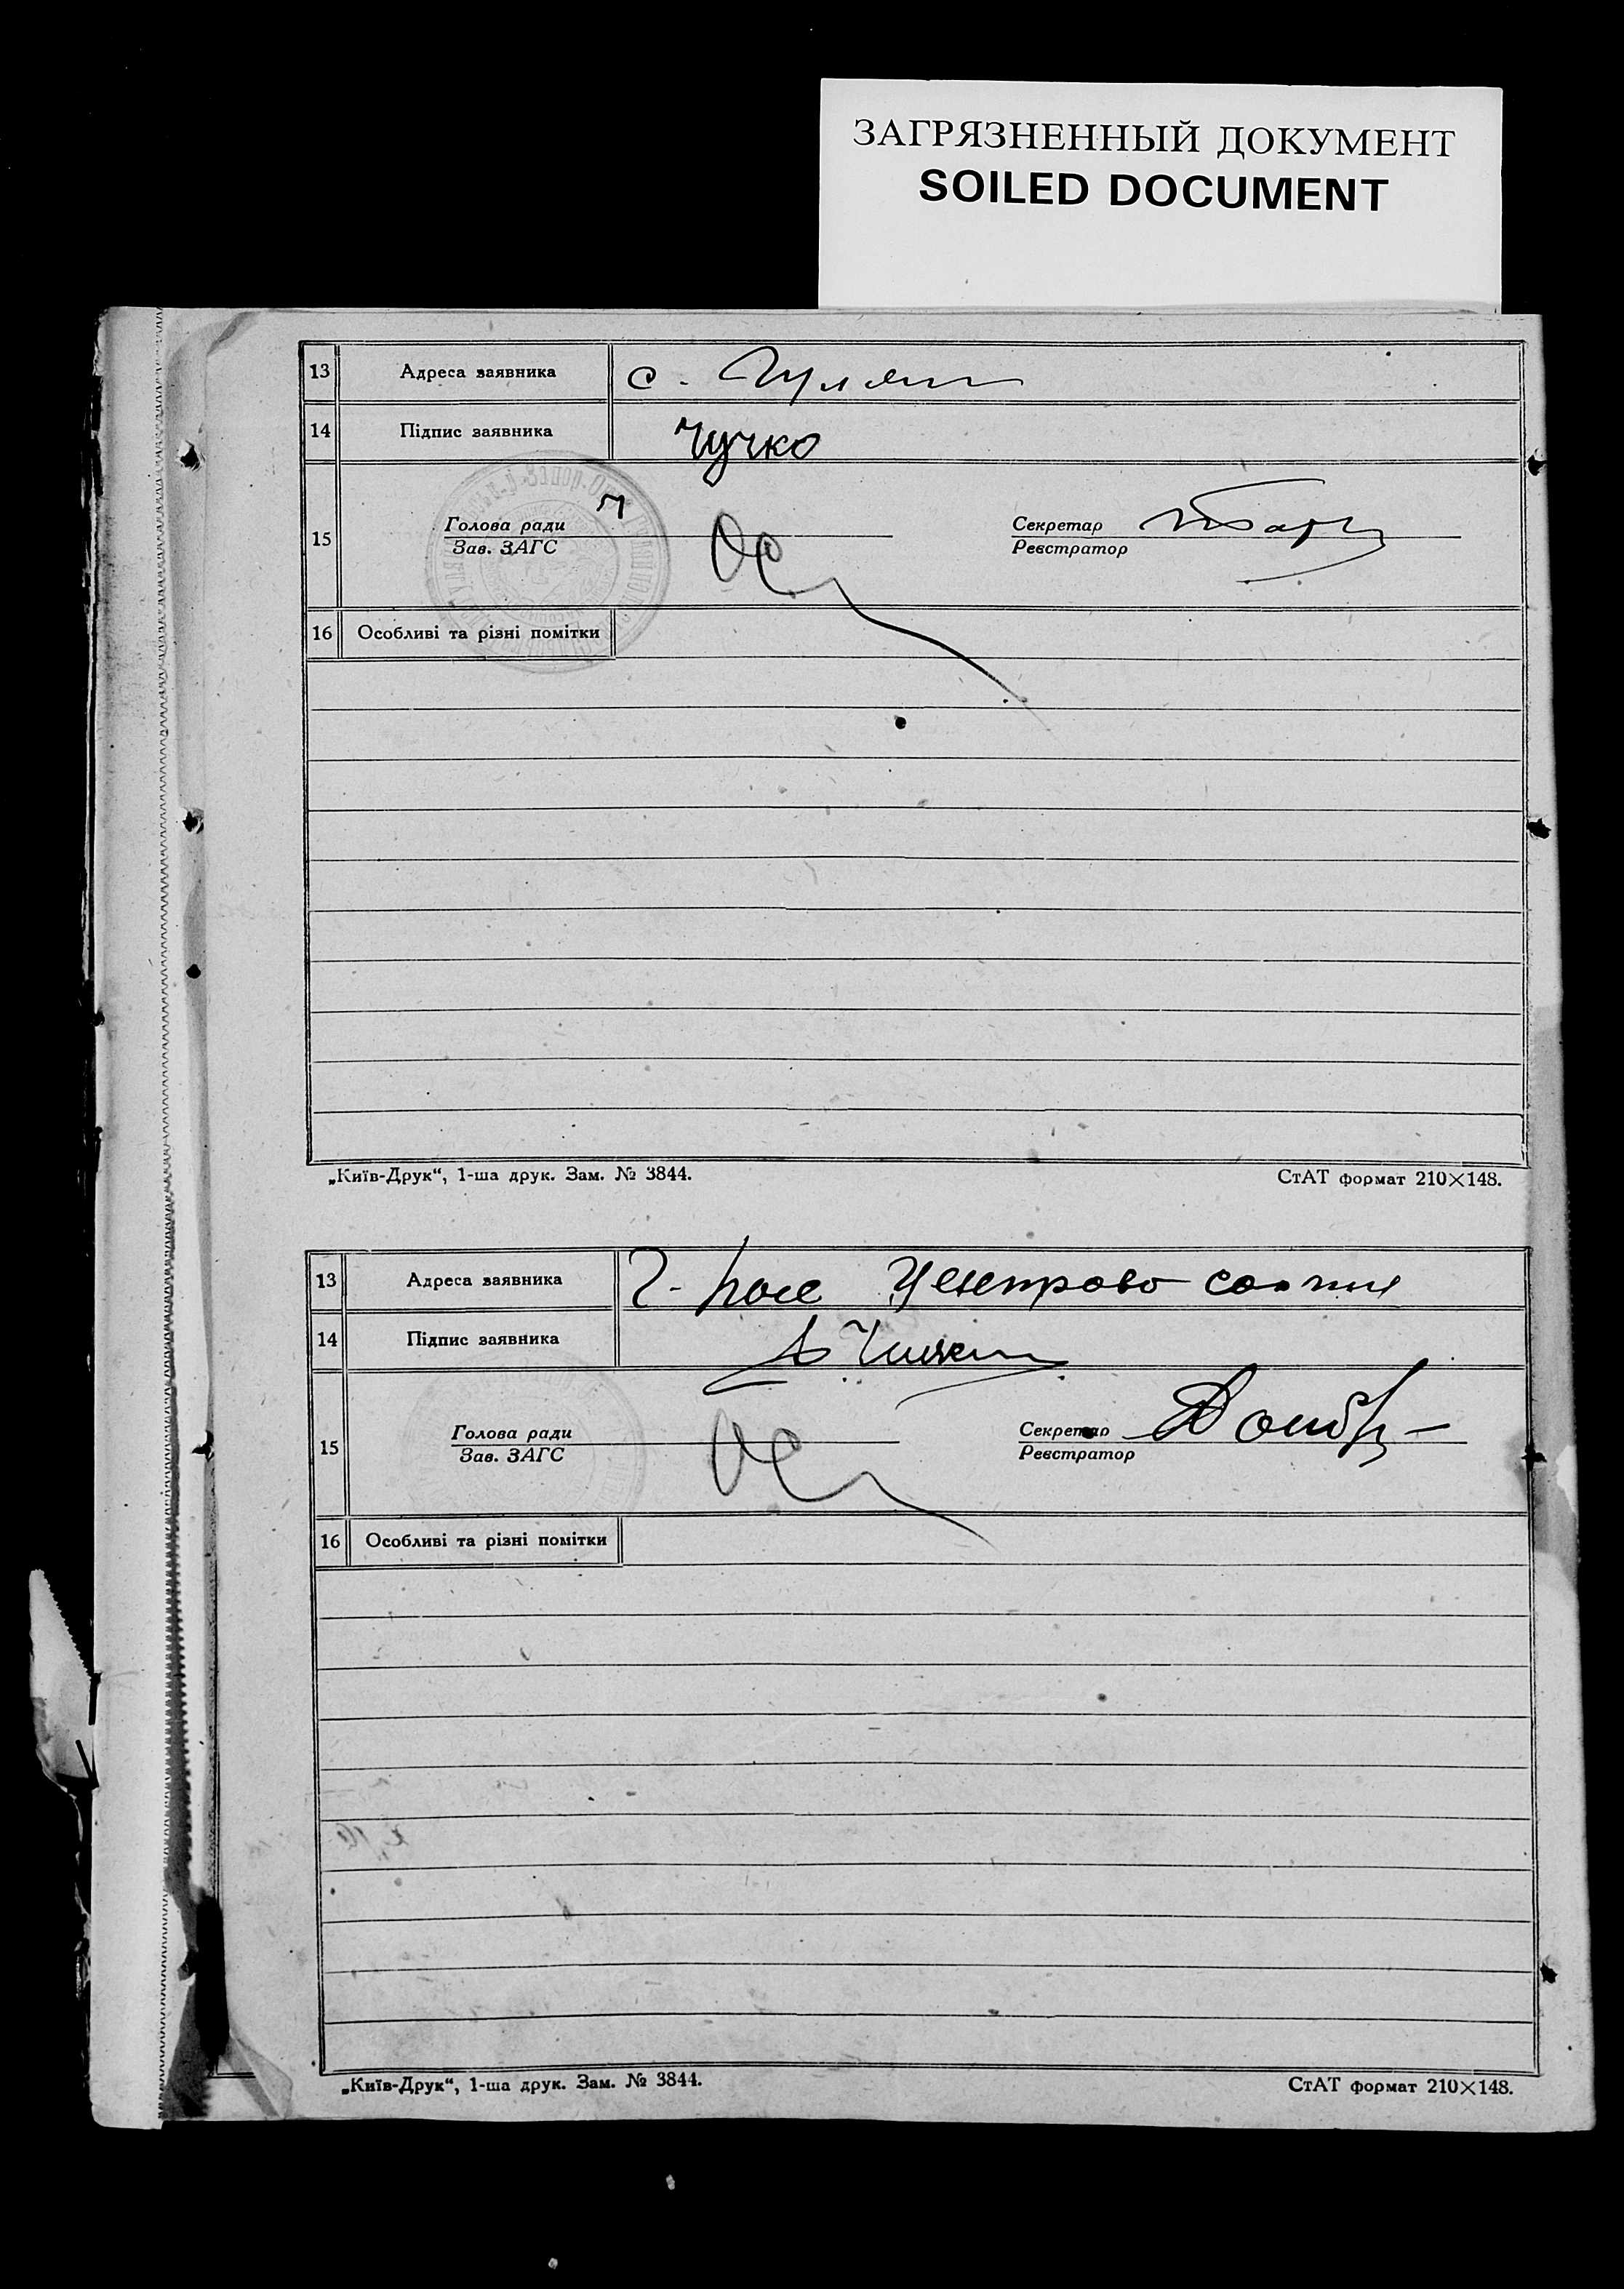 ЗАГРЯЗНЕННЫЙ ДОКУМЕНТ
SOILED DOCUMENT
13 Адреса заявника с.
14 Підпис заявника Чучко
15 Голова ради Секретар
Зав. ЗАГС Реєстратор
16 Особливі та різні помітки
„Київ-Друк“, 1-ша друк. Зам. № 3844. СтАТ формат 210×148.
13 Адреса заявника Г-Поле Центрово
14 Підпис заявника
15 Голова ради Секретар
Зав. ЗАГС Реєстратор
16 Особливі та різні помітки
„Київ-Друк“, 1-ша друк. Зам. № 3844. СтАТ формат 210×148.